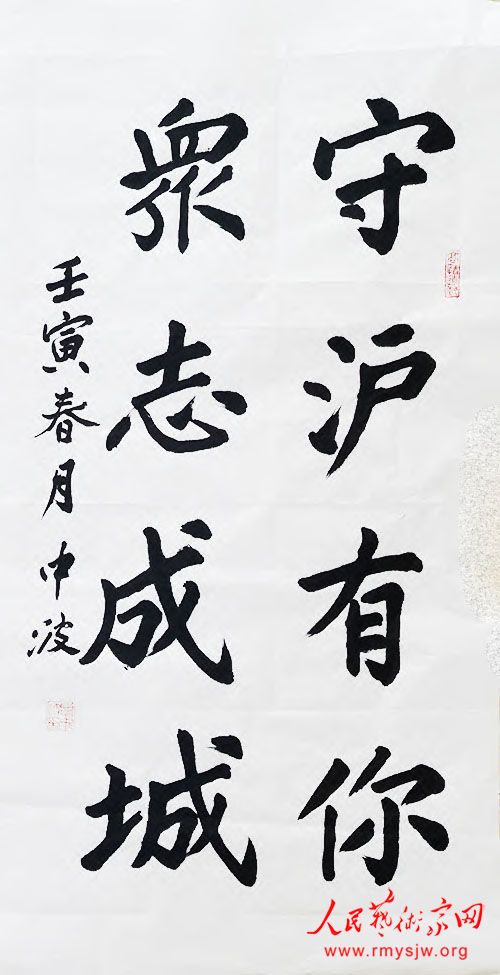 守沪有你
眾志成城
壬寅春月中波
人民藝術家网
www.rmysjw.org